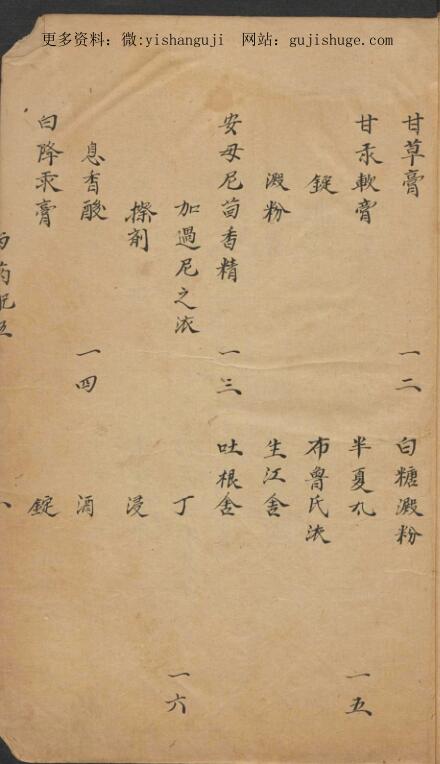 更多资料：微:yishanguji 网站：gujishuge.com
甘草膏
一二
甘汞軟膏
錠
澱粉
安母尼茴香精
一三
加過尼之液
擦剤
息香酸
一四
白降汞膏
白糖澱粉
半夏丸
一五
布魯氏液
生江舎
吐根舎
丁
一六
浸
酒
錠